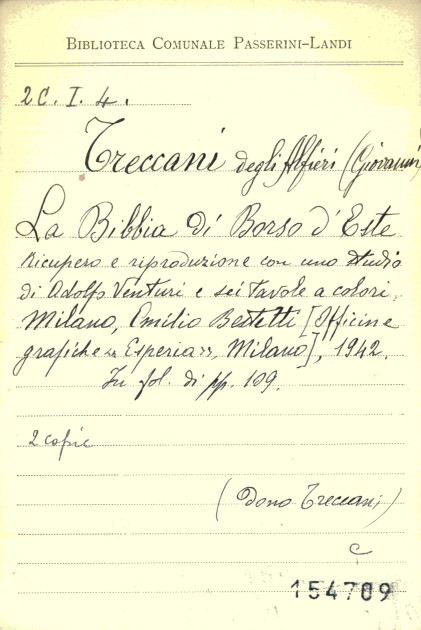 BIBLIOTECA COMUNALE PASSERINI-LANDI
2C. I. 4.
Treccani degli Alfieri (Giovanni)
La Bibbia di Borso d'Este
ricupero e riproduzione con uno studio
di Adolfo Venturi e sei tavole a colori.
Milano, Emilio Bestetti [Officine
grafiche "Esperia", Milano], 1942.
In fol. di pp. 109.
2 copie
(Dono Treccani)
C
154709